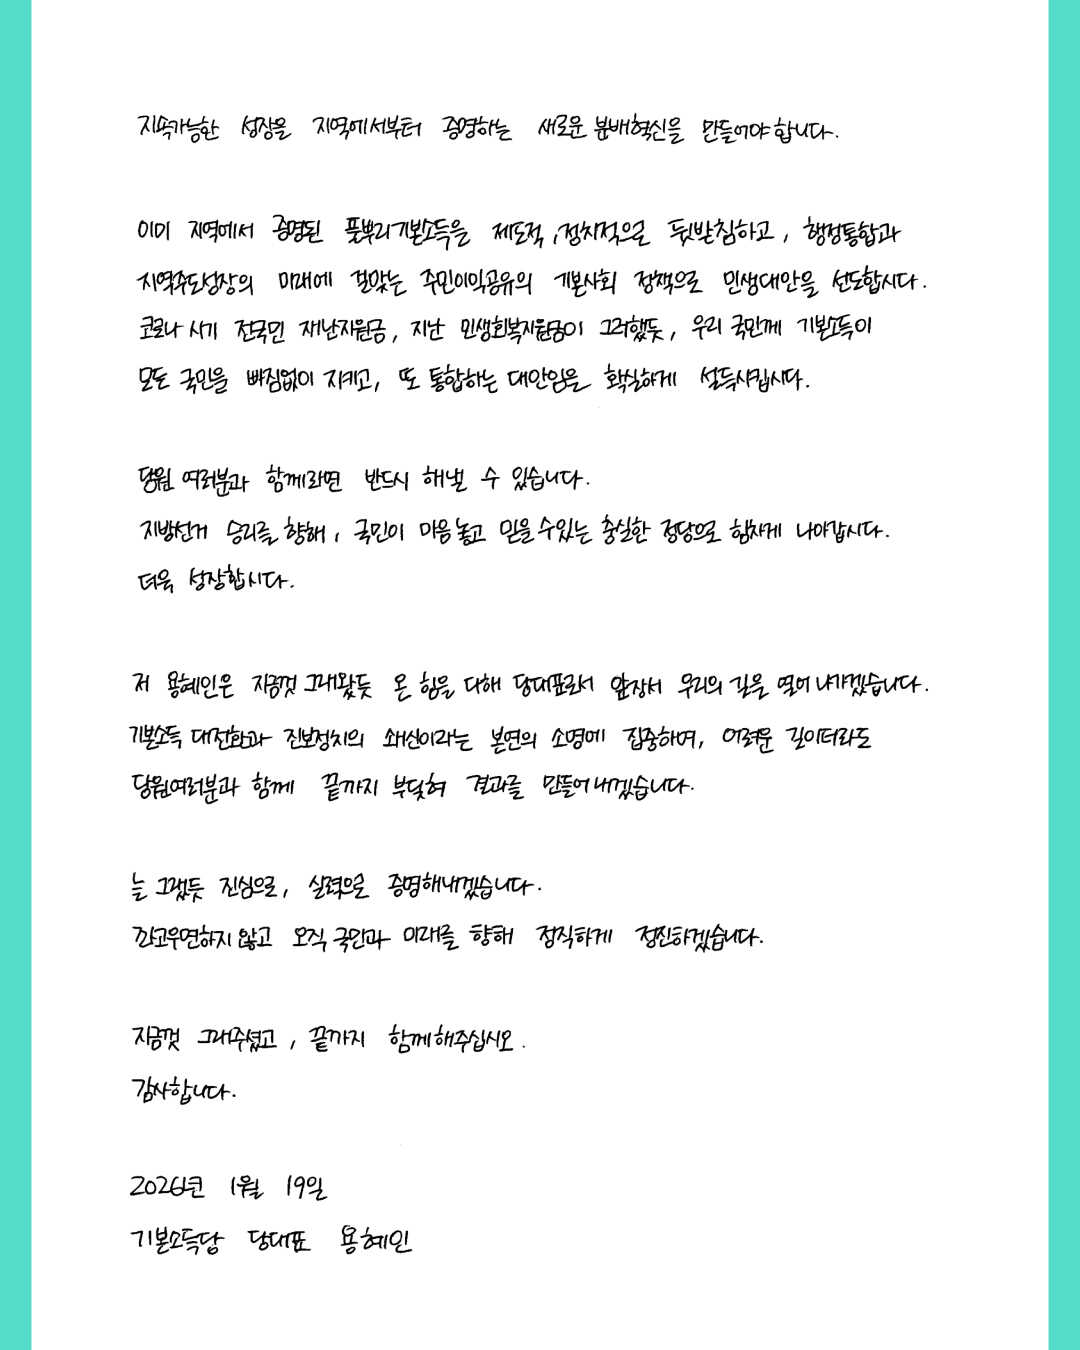 지속가능한 성장을 지역에서부터 증명하는 새로운 분배혁신을 만들어야 합니다.
이미 지역에서 증명된 풀뿌리기본소득을 제도적, 정치적으로 뒷받침하고, 행정통합과
지역주도성장의 미래에 걸맞는 주민이익공유의 기본사회 정책으로 민생대안을 선도합시다.
코로나 시기 전국민 재난지원금, 지난 민생회복지원금이 그러했듯, 우리 국민께 기본소득이
모든 국민을 빠짐없이 지키고, 또 통합하는 대안임을 확실하게 설득시킵시다.
당원 여러분과 함께라면 반드시 해낼 수 있습니다.
지방선거 승리를 향해, 국민이 마음 놓고 믿을 수 있는 충실한 정당으로 힘차게 나아갑시다.
더욱 성장합시다.
저 용혜인은 지금껏 그래왔듯 온 힘을 다해 당대표로서 앞장서 우리의 길을 열어 나가겠습니다.
기본소득 대전환과 진보정치의 쇄신이라는 본연의 소명에 집중하여, 어려운 길이더라도
당원여러분과 함께 끝까지 부딪혀 결과를 만들어 내겠습니다.
늘 그랬듯 진심으로, 실력으로 증명해내겠습니다.
좌고우면하지 않고 오직 국민과 미래를 향해 정직하게 정진하겠습니다.
지금껏 그래주셨고, 끝까지 함께해주십시오.
감사합니다.
2026년 1월 19일
기본소득당 당대표 용혜인